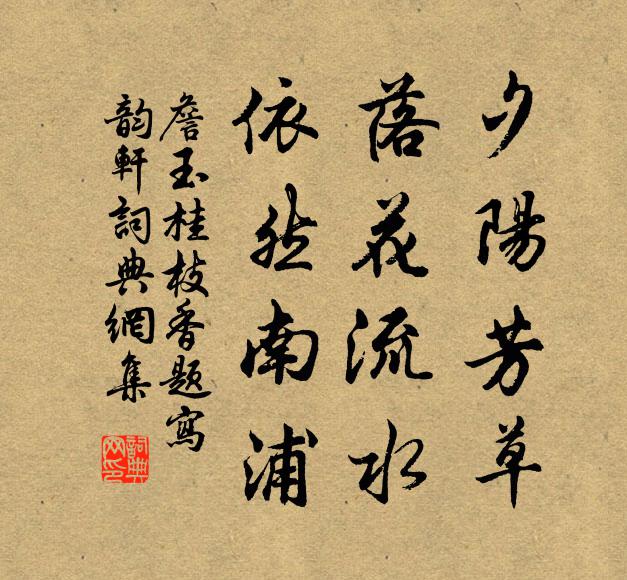 夕陽芳草
落花流水
依然南浦
詹玉桂枝香題寫
韵軒詞典網集
詞典
网印